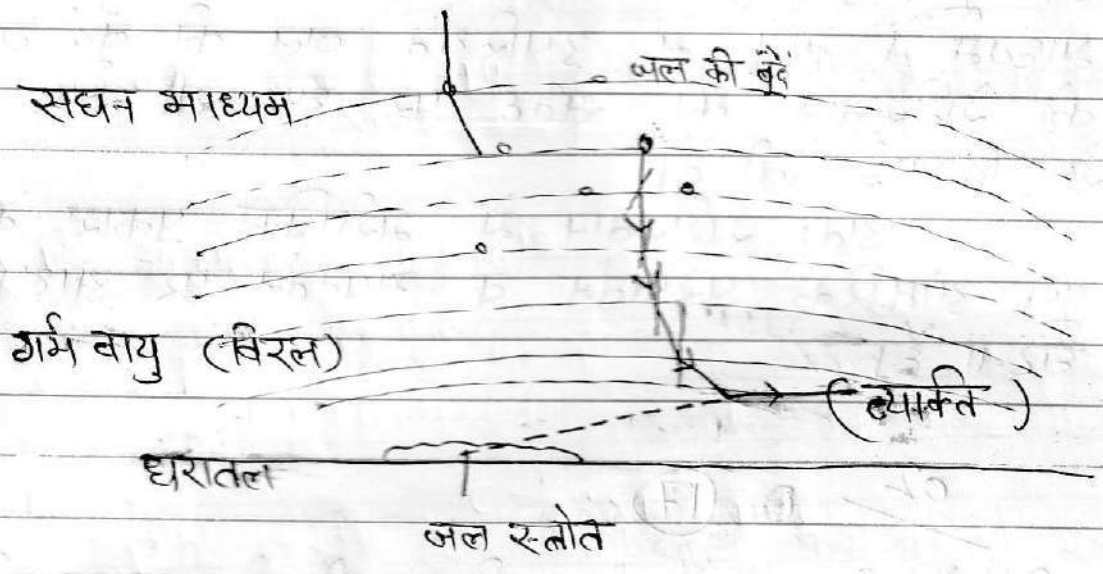 जल की बूंदें
सघन माध्यम
गर्म वायु (विरल)
(व्यक्ति)
धरातल
जल स्त्रोत